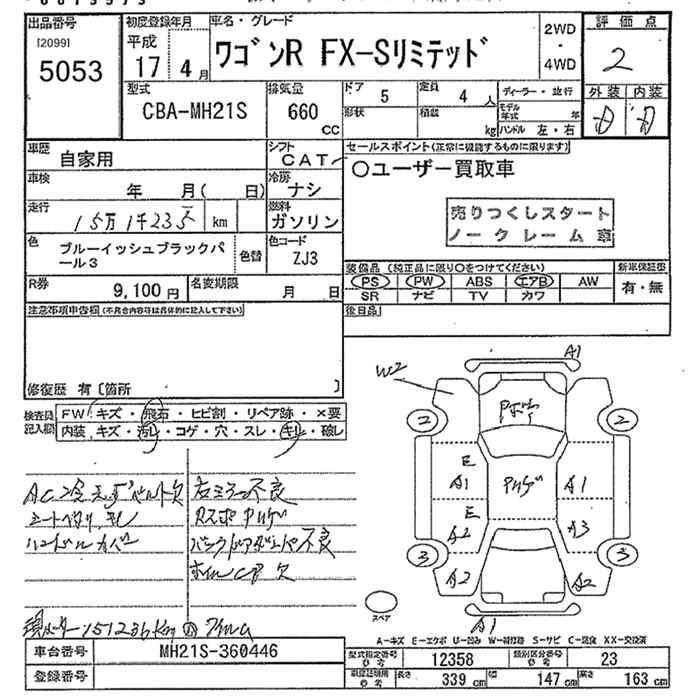 出品番号 初度登録年月 車名・グレード 評価点
[2099]
5053
平成
17 4月
ワゴンR FX-Sリミテッド
2WD
・
4WD
2
型式 排気量 ドア 定員 ディーラー・並行 外装 内装
CBA-MH21S 660 cc 5 4人
形状 積載 kg モデル年式 年
ハンドル 左・右
車歴 自家用 シフト CAT
セールスポイント(正常に機能するものに限ります)
〇ユーザー買取車
車検 年 月( 日) 冷房 ナシ
走行 km 燃料 ガソリン
売りつくしスタート
ノークレーム車
色 ブルーイッシュブラックパール3 色替 色コード ZJ3
装備品(純正品に限り〇をつけてください) 新車保証書
PS PW ABS エアB AW 有・無
SR ナビ TV カワ
R券 9,100円 名変期限 月 日
後日品
注意事項申告欄(不具合内容等は具体的に記入して下さい)
修復歴 有〔箇所 〕
検査員記入欄
FW キズ・飛石・ヒビ割・リペア跡・×要
内装 キズ・汚レ・コゲ・穴・スレ・キレ・破レ
シートヘタリ、キレ
ハンドルカバー
右ミラー不良
A1
W2
2 2
E
A1 A1
E
A2 A3
3 3
A2 A2
A1
スペア
A-キズ E-エクボ U-凹み W-補修跡 S-サビ C-腐食 XX-交換済
車台番号 MH21S-360446
型式指定番号 参考 12358 類別区分番号 参考 23
登録番号
車検証明用 参考 長さ 339cm 幅 147cm 高さ 163cm